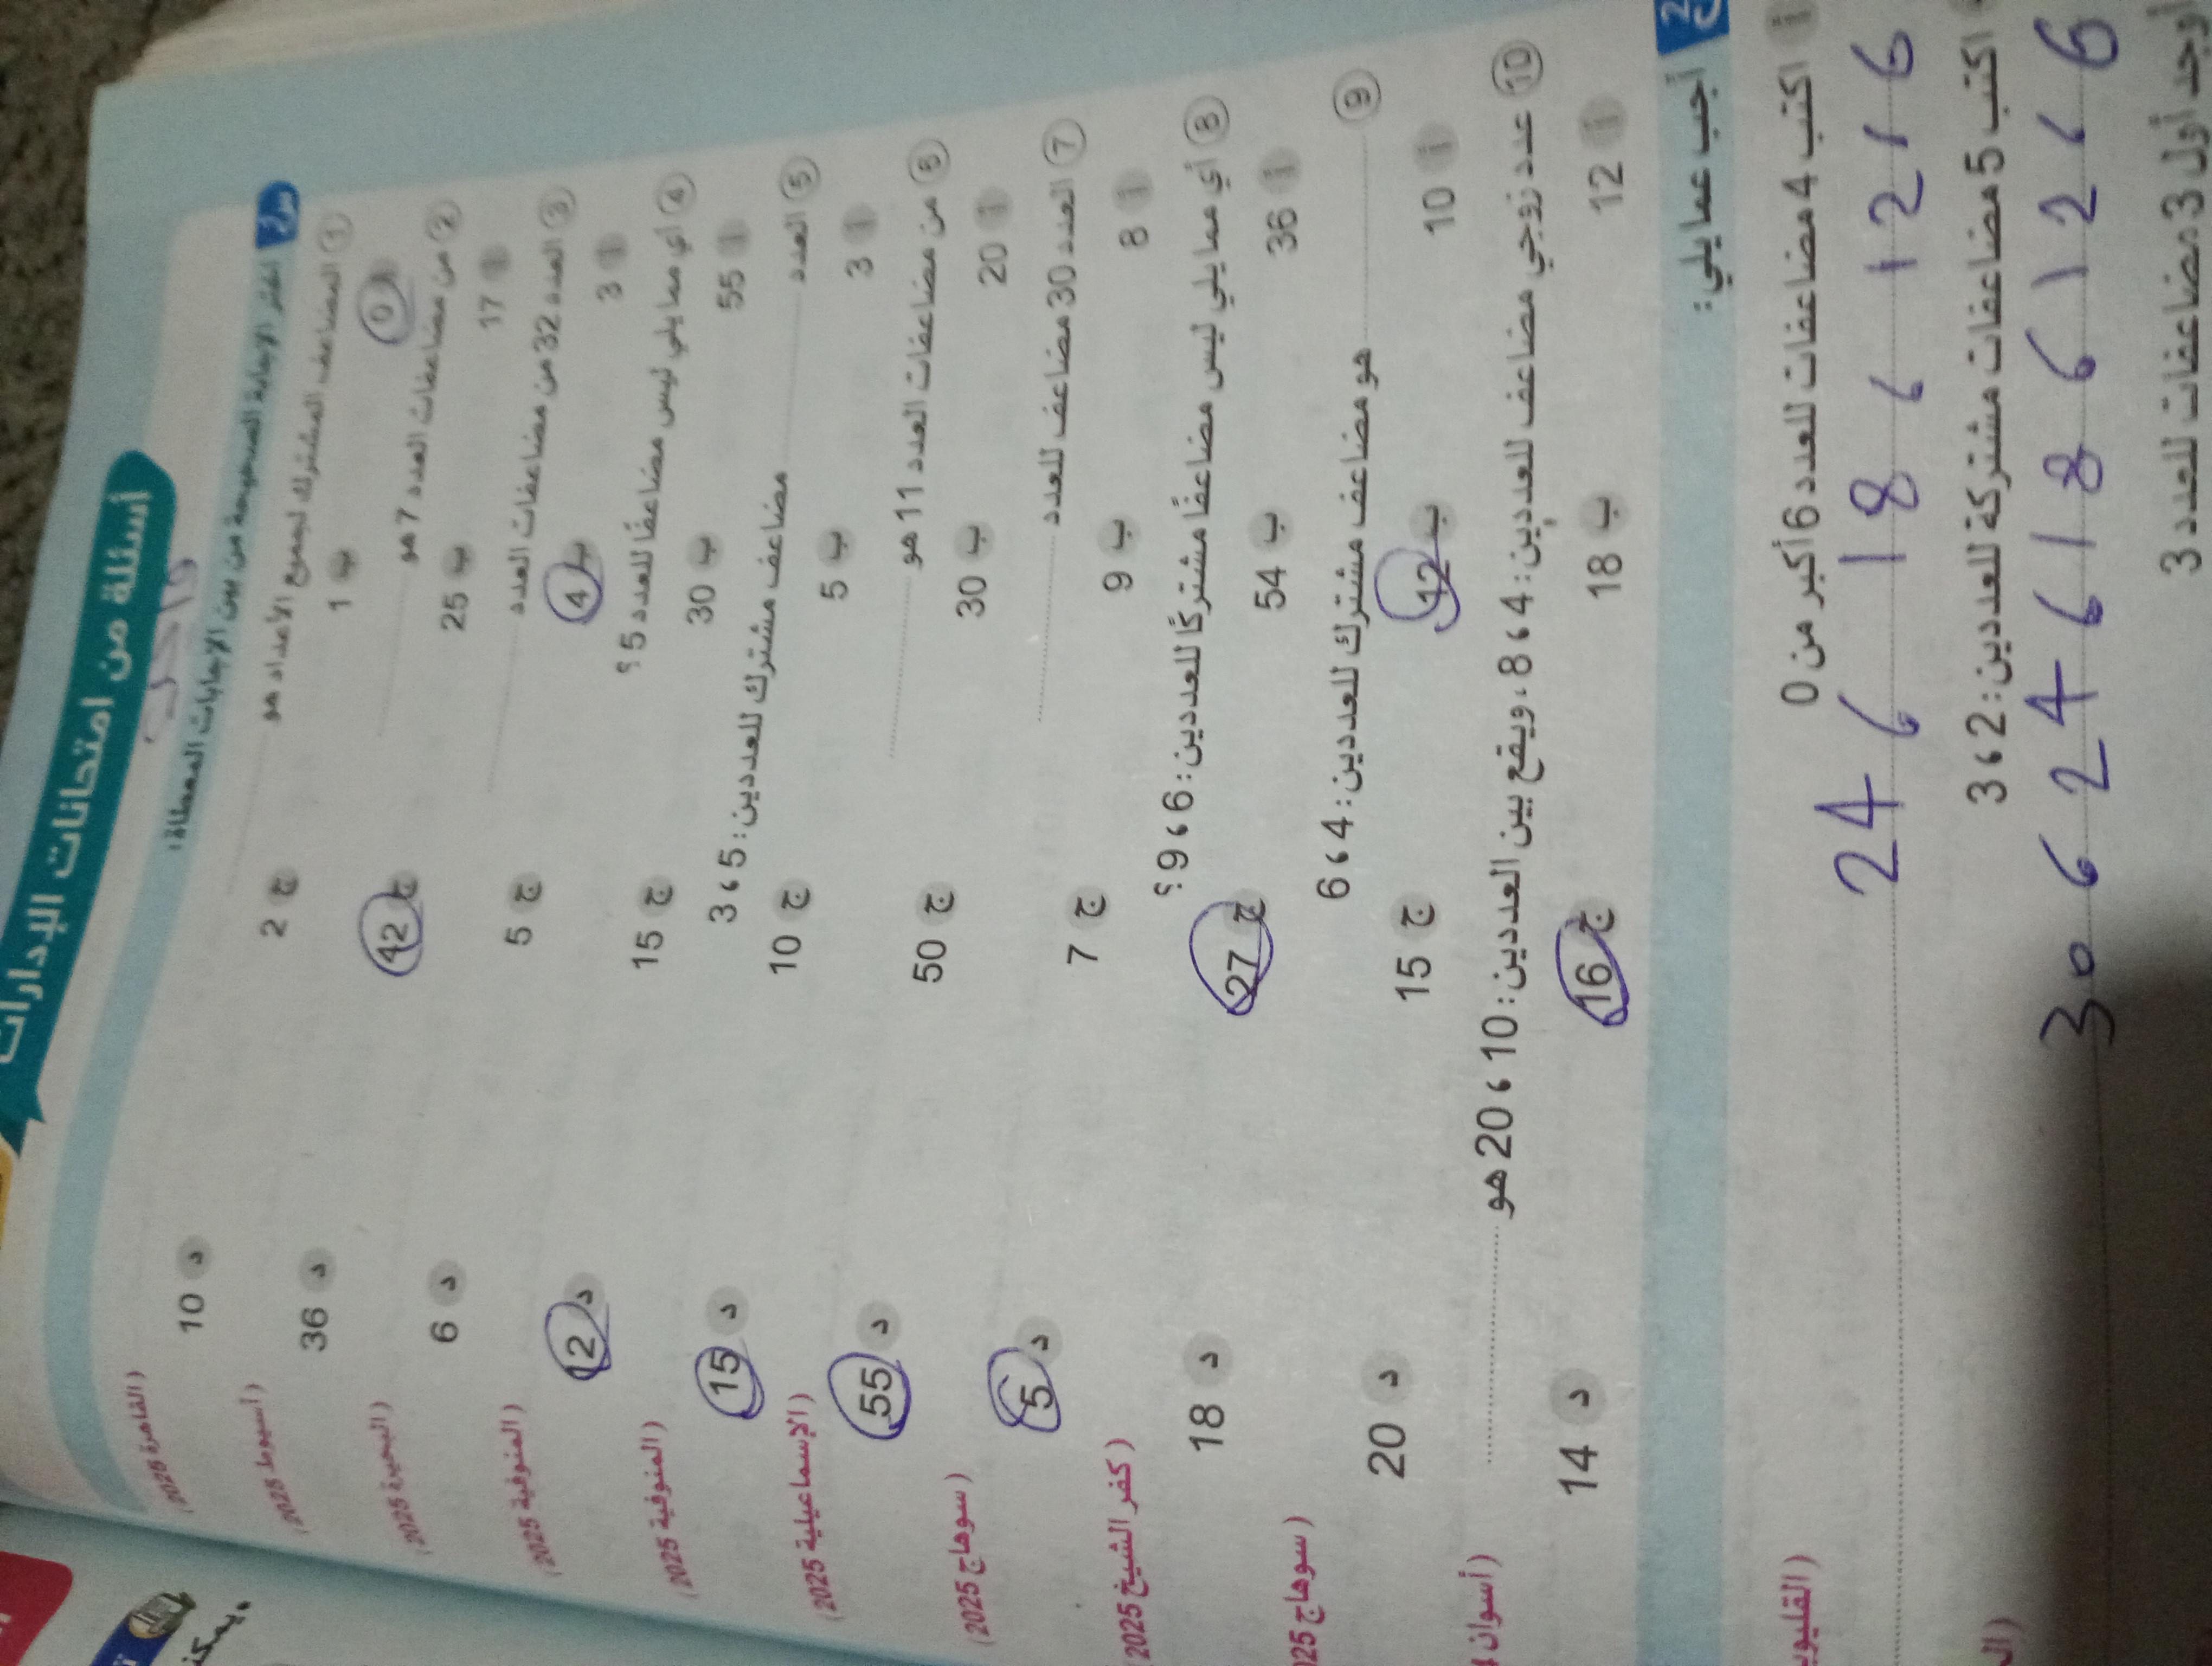 أسئلة من امتحانات الإدارات
س1 اختر الإجابة الصحيحة من بين الإجابات المعطاة:
1 المضاعف المشترك لجميع الأعداد هو .......... (القاهرة 2025)
أ 0 ب 1 ج 2 د 10
2 من مضاعفات العدد 7 هو .......... (أسيوط 2025)
أ 17 ب 25 ج 42 د 36
3 العدد 32 من مضاعفات العدد .......... (البحيرة 2025)
أ 3 ب 4 ج 5 د 6
4 أي مما يلي ليس مضاعفًا للعدد 5 ؟ (المنوفية 2025)
أ 55 ب 30 ج 15 د 12
5 العدد .......... مضاعف مشترك للعددين: 5 ، 3 (المنوفية 2025)
أ 3 ب 5 ج 10 د 15
6 من مضاعفات العدد 11 هو .......... (الإسماعيلية 2025)
أ 20 ب 30 ج 50 د 55
7 العدد 30 مضاعف للعدد .......... (سوهاج 2025)
أ 8 ب 9 ج 7 د 5
8 أي مما يلي ليس مضاعفًا مشتركًا للعددين: 6 ، 9 ؟ (كفر الشيخ 2025)
أ 36 ب 54 ج 27 د 18
9 .......... هو مضاعف مشترك للعددين: 4 ، 6 (سوهاج 025
أ 10 ب 12 ج 15 د 20
10 عدد زوجي مضاعف للعددين: 4 ، 8 ، ويقع بين العددين: 10 ، 20 هو .......... (أسوان
أ 12 ب 18 ج 16 د 14
2 أجب عما يلي:
أ اكتب 4 مضاعفات للعدد 6 أكبر من 0 (القليوب
6 ، 12 ، 18 ، 24
اكتب 5 مضاعفات مشتركة للعددين: 2 ، 3 (ال
6 ، 12 ، 18 ، 24 ، 30
أوجد أول 3 مضاعفات للعدد 3